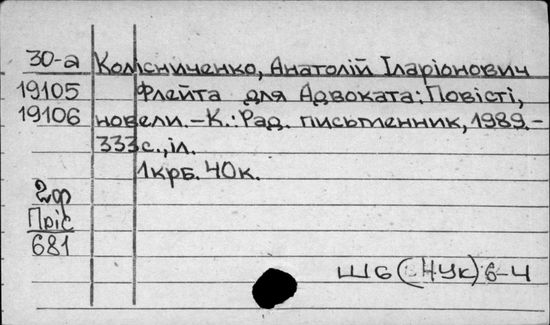 30-а Колісниченко, Анатолій Іларіонович
19105 Флейта для Адвоката: Повісті,
19106 новели. – К.: Рад. письменник, 1989. –
333 с., іл.
1 крб. 40 к.
2 ф
Пріс
681
Ш6( НУк)6-4